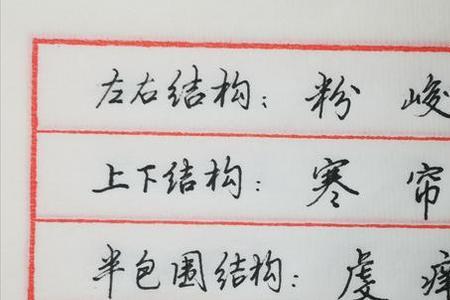 左右结构：粉 峻
上下结构：寒 帘
半包围结构：虔